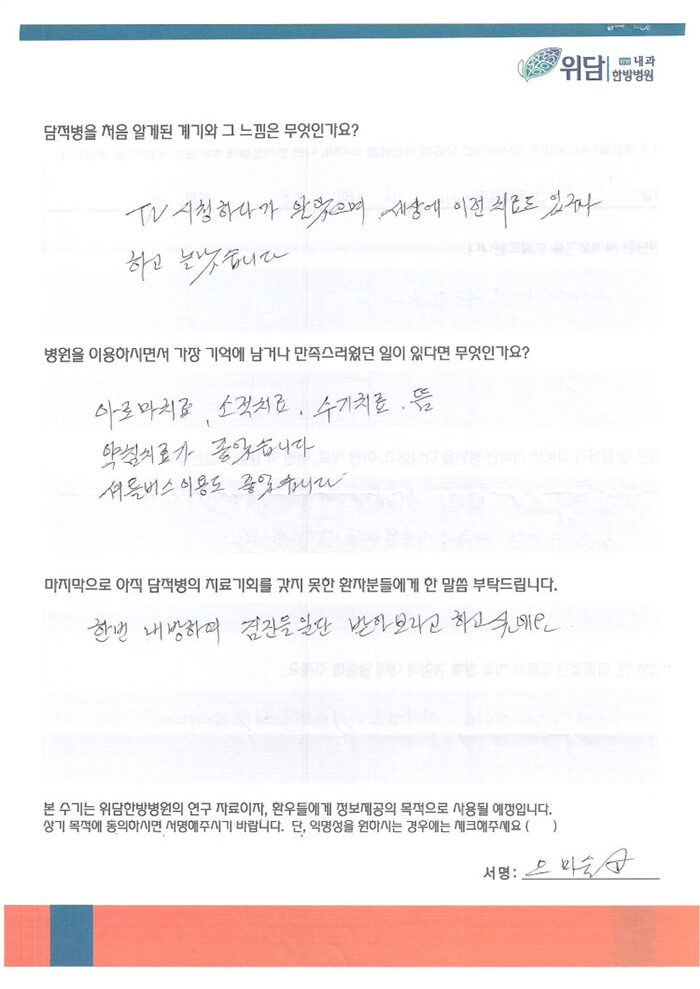 위담 한방 내과
한방병원
담적병을 처음 알게된 계기와 그 느낌은 무엇인가요?
TV 시청하다가 알았으며, 세상에 이런 치료도 있구나
하고 놀랐습니다
병원을 이용하시면서 가장 기억에 남거나 만족스러웠던 일이 있다면 무엇인가요?
아로마치료, 소적치료, 수기치료, 뜸
약침치료가 좋았습니다
셔틀버스이용도 좋았습니다
마지막으로 아직 담적병의 치료기회를 갖지 못한 환자분들에게 한 말씀 부탁드립니다.
한번 내방하여 검진을 일단 받아보라고 하고싶네요.
본 수기는 위담한방병원의 연구 자료이자, 환우들에게 정보제공의 목적으로 사용될 예정입니다.
상기 목적에 동의하시면 서명해주시기 바랍니다. 단, 익명성을 원하시는 경우에는 체크해주세요 ( )
서명: